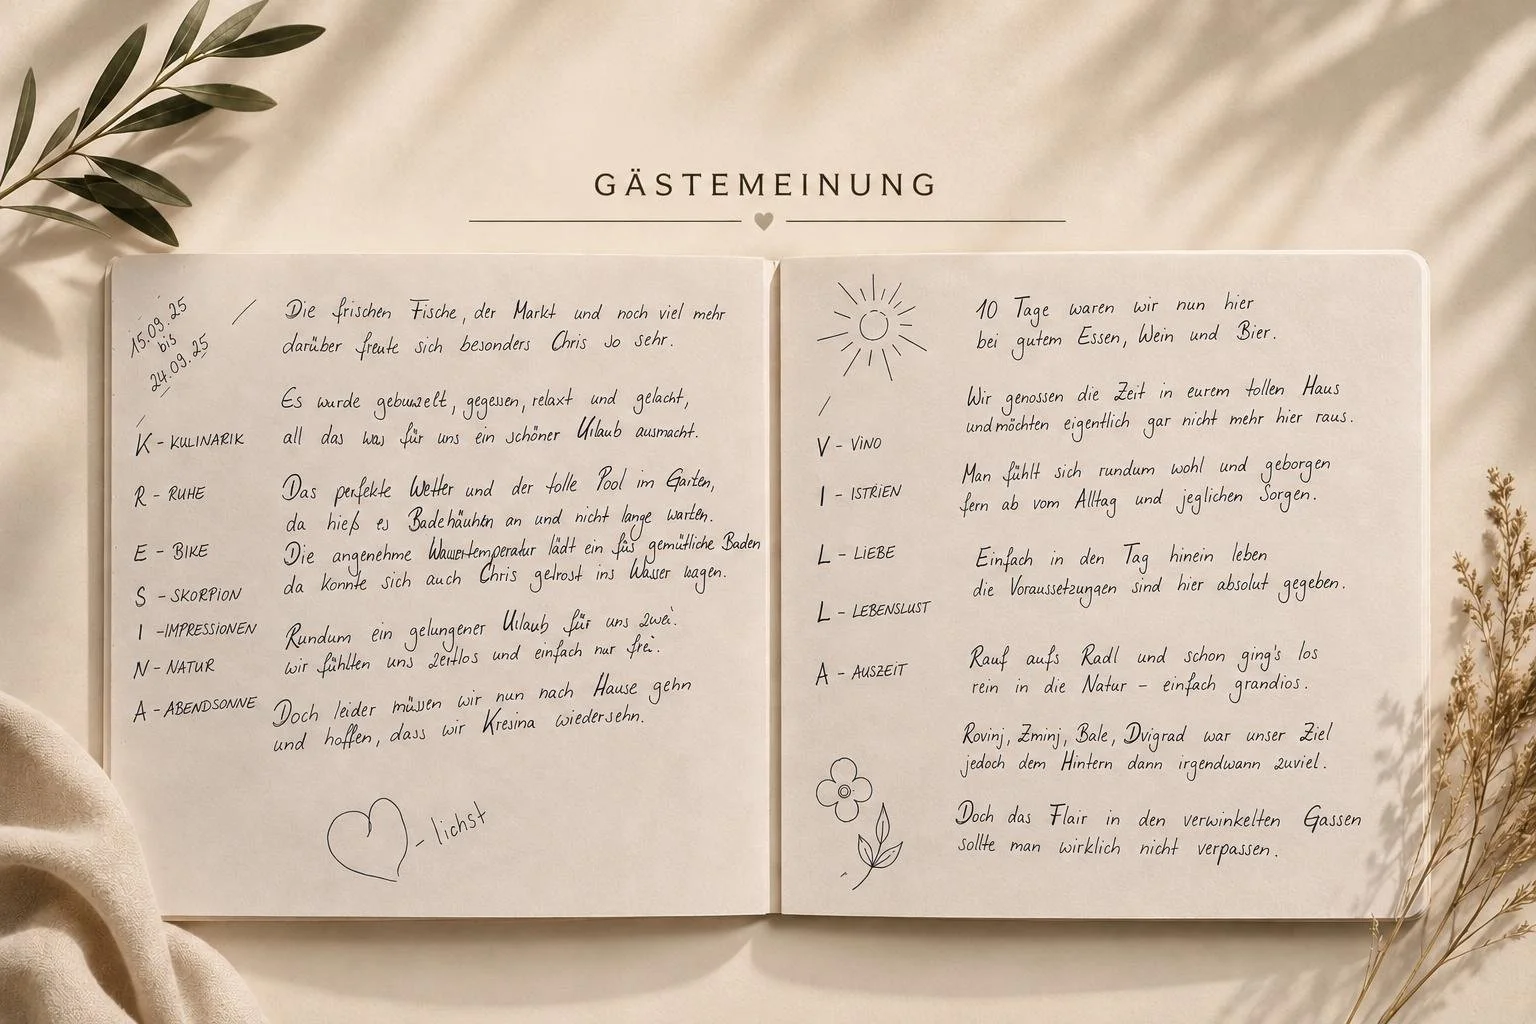 GÄSTEMEINUNG
15.09.25
bis
24.09.25
K - KULINARIK
R - RUHE
E - BIKE
S - SKORPION
I - IMPRESSIONEN
N - NATUR
A - ABENDSONNE
Die frischen Fische, der Markt und noch viel mehr
darüber freute sich besonders Chris so sehr.
Es wurde gegessen, relaxt und gelacht,
all das was für uns ein schöner Urlaub ausmacht.
Das perfekte Wetter und der tolle Pool im Garten,
da hieß es an und nicht lange warten.
Die angenehme Wassertemperatur lädt ein fürs gemütliche Baden
da konnte sich auch Chris getrost ins Wasser wagen.
Rundum ein gelungener Urlaub für uns zwei.
wir fühlten uns zeitlos und einfach nur frei.
Doch leider müssen wir nun nach Hause gehn
und hoffen, dass wir Kresina wiedersehn.
- lichst
V - VINO
I - ISTRIEN
L - LIEBE
L - LEBENSLUST
A - AUSZEIT
10 Tage waren wir nun hier
bei gutem Essen, Wein und Bier.
Wir genossen die Zeit in eurem tollen Haus
und möchten eigentlich gar nicht mehr hier raus.
Man fühlt sich rundum wohl und geborgen
fern ab vom Alltag und jeglichen Sorgen.
Einfach in den Tag hinein leben
die Voraussetzungen sind hier absolut gegeben.
Rauf aufs Radl und schon ging's los
rein in die Natur - einfach grandios.
Rovinj, Zminj, Bale, Dvigrad war unser Ziel
jedoch dem Hintern dann irgendwann zuviel.
Doch das Flair in den verwinkelten Gassen
sollte man wirklich nicht verpassen.